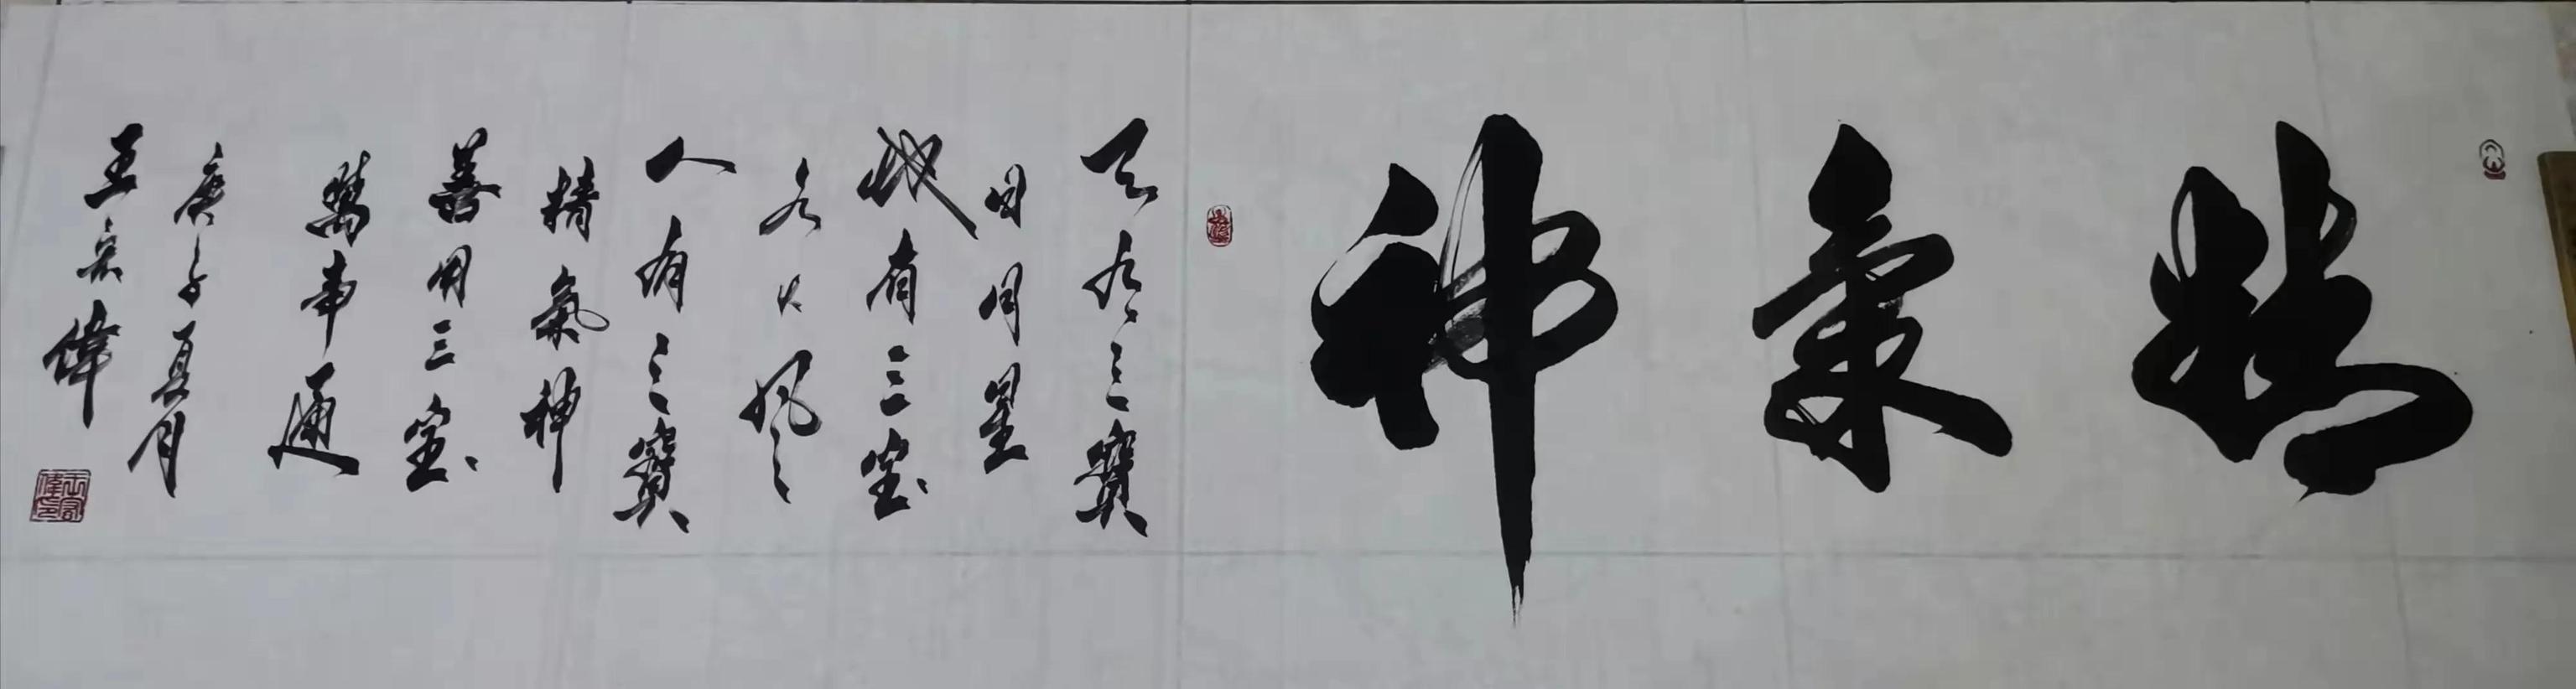 精氣神
天有三寶
日月星
地有三宝
水火风
人有三寶
精氣神
善用三宝
萬事通
庚子夏月
王宗偉